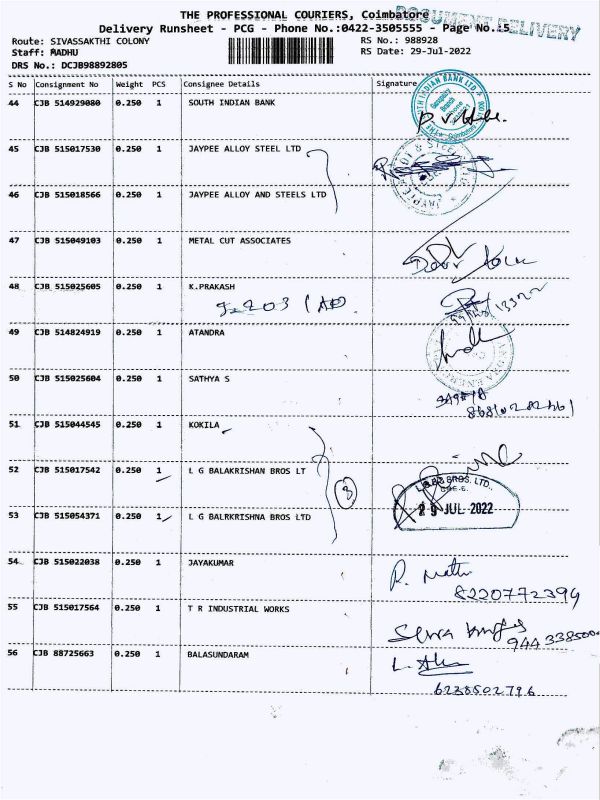 THE PROFESSIONAL COURIERS, Coimbatore
DOCUMENT DELIVERY
Delivery Runsheet - PCG - Phone No.:0422-3505555 - Page No.:5
Route: SIVASSAKTHI COLONY RS No.: 988928
Staff: RADHU RS Date: 29-Jul-2022
DRS No.: DCJB98892805
S No Consignment No Weight PCS Consignee Details Signature
44 CJB 514929080 0.250 1 SOUTH INDIAN BANK
45 CJB 515017530 0.250 1 JAYPEE ALLOY STEEL LTD
46 CJB 515018566 0.250 1 JAYPEE ALLOY AND STEELS LTD
47 CJB 515049103 0.250 1 METAL CUT ASSOCIATES
48 CJB 515025605 0.250 1 K.PRAKASH
49 CJB 514824919 0.250 1 ATANDRA
50 CJB 515025604 0.250 1 SATHYA S
51 CJB 515044545 0.250 1 KOKILA
52 CJB 515017542 0.250 1 L G BALAKRISHAN BROS LT
3
L.G.B. BROS. LTD.,
29 JUL 2022
53 CJB 515054371 0.250 1 L G BALRKRISHNA BROS LTD
54 CJB 515022038 0.250 1 JAYAKUMAR
8220772394
55 CJB 515017564 0.250 1 T R INDUSTRIAL WORKS
56 CJB 88725663 0.250 1 BALASUNDARAM
6238502796